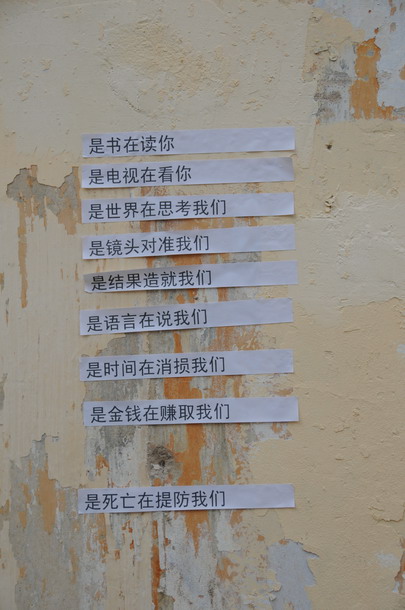 是书在读你
是电视在看你
是世界在思考我们
是镜头对准我们
是结果造就我们
是语言在说我们
是时间在消损我们
是金钱在赚取我们
是死亡在提防我们